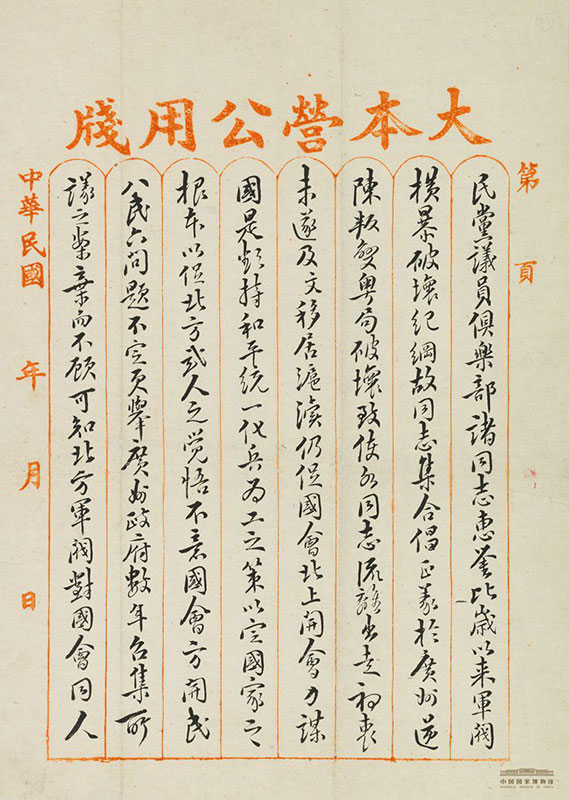 大本營公用牋
第 頁
民黨議員俱樂部諸同志惠鑒比歲以來軍閥
橫暴破壞紀綱故同志集合倡正義於廣州迨
陳叛變粵局破壞致使各同志流離出走初衷
未遂及文移居滬瀆仍促國會北上開會力謀
國是持和平統一化兵為工之策以定國家之
根本以促北方武人之覺悟不意國會方開民
八民六問題不定更舉廣州政府數年召集所
議之案棄而不顧可知北方軍閥對國會同人
中華民國 年 月 日
中国国家博物馆
NATIONAL MUSEUM OF CHINA